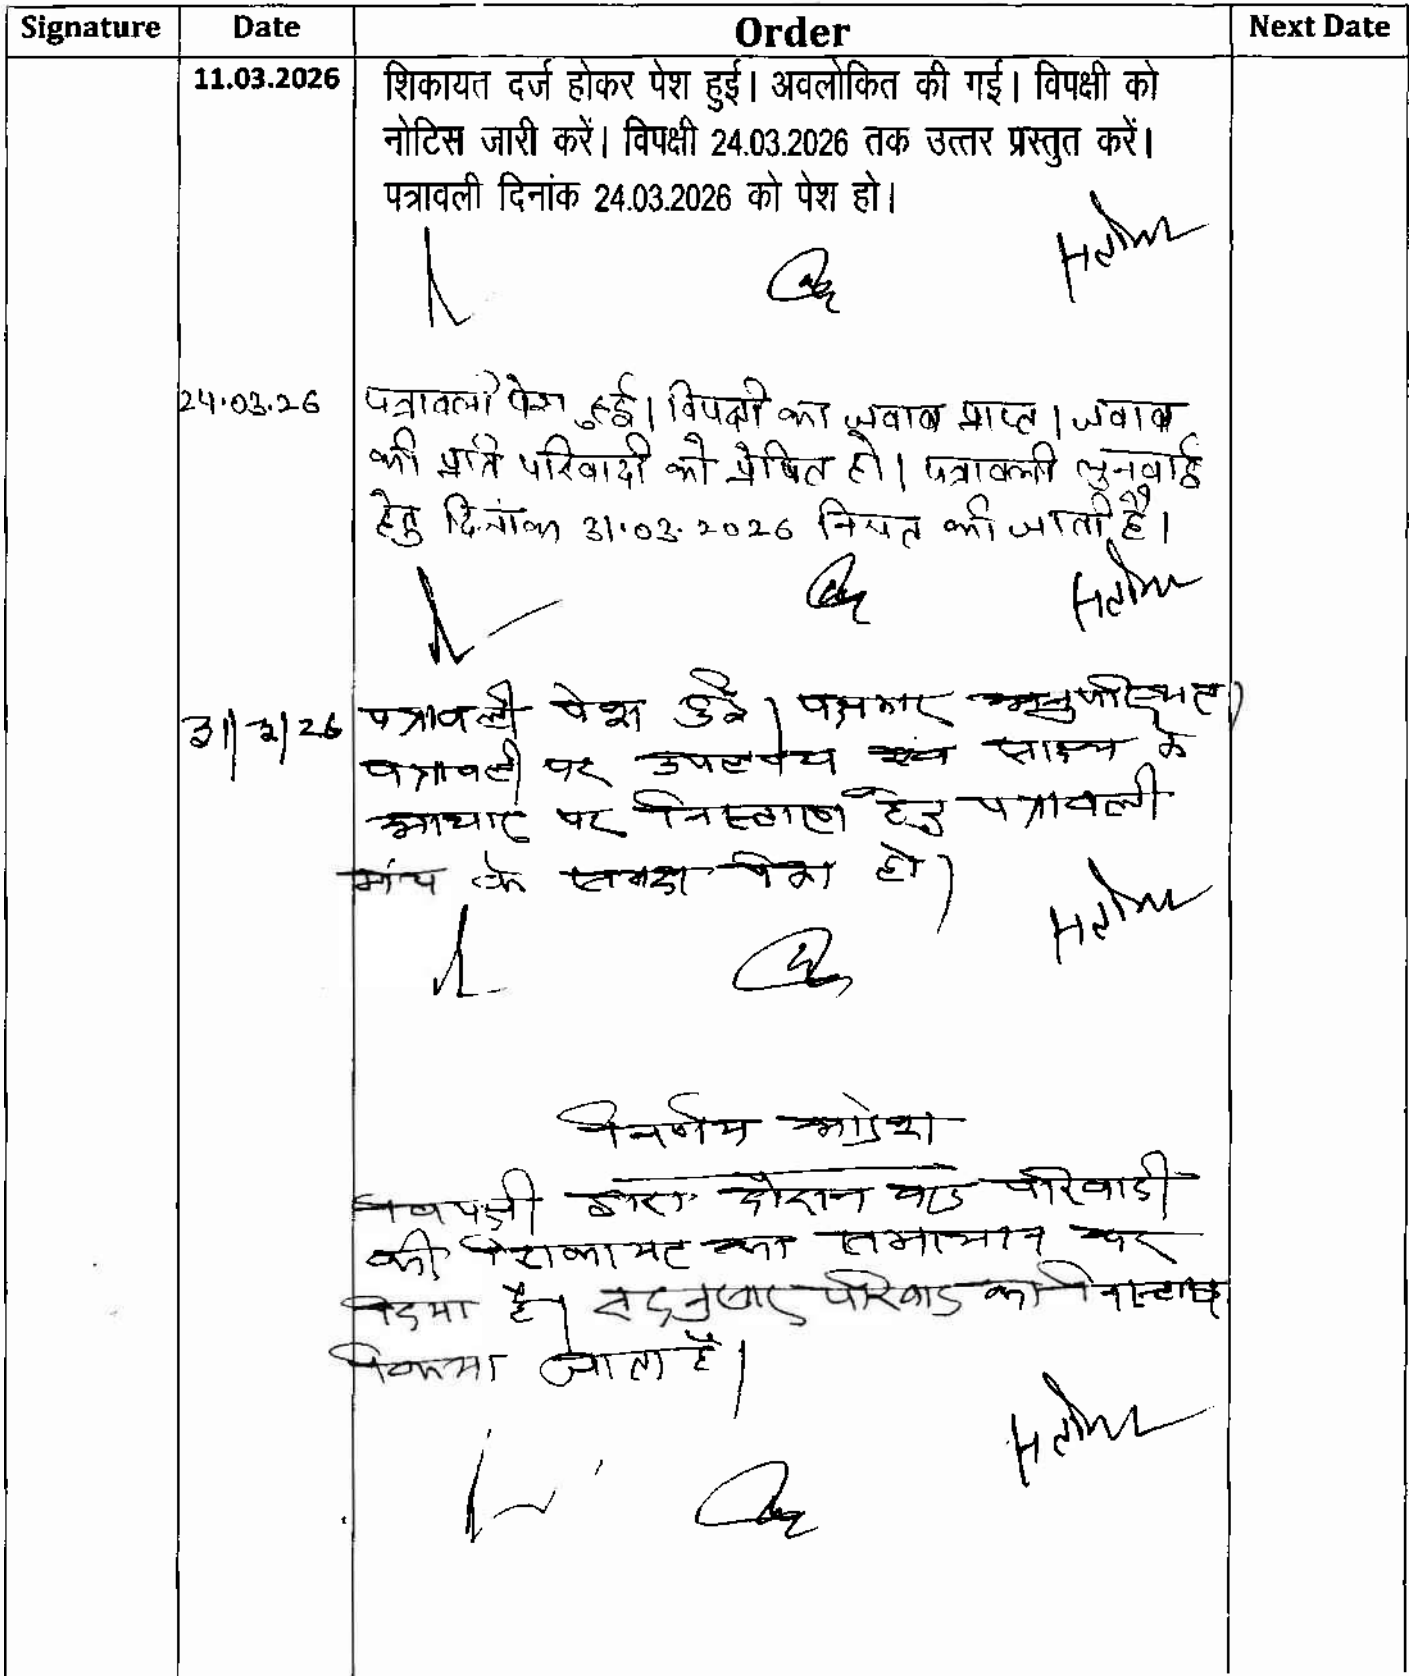 Signature Date Order Next Date
11.03.2026 शिकायत दर्ज होकर पेश हुई। अवलोकित की गई। विपक्षी को
नोटिस जारी करें। विपक्षी 24.03.2026 तक उत्तर प्रस्तुत करें।
पत्रावली दिनांक 24.03.2026 को पेश हो।
24.03.26 पत्रावली पेश हुई। विपक्षी का जवाब प्राप्त। जवाब
की प्रति परिवादी को प्रेषित हो। पत्रावली सुनवाई
हेतु दिनांक 31.03.2026 नियत की जाती है।
31/3/26 पत्रावली पेश हुई। पक्षकार अनुपस्थित।
पत्रावली पर उपलब्ध साक्ष्य के
आधार पर निस्तारण हेतु पत्रावली
मंच के समक्ष पेश हो।
निर्णय आदेश
विपक्षी द्वारा दौरान वाद परिवादी
की शिकायत का समाधान कर
दिया है। तद्नुसार परिवाद का निस्तारण
किया जाता है।